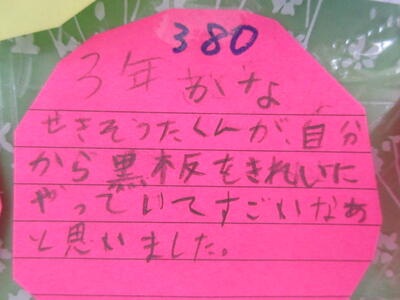 380
3年 かな
せきそうたくんが、自分
から黒板をきれいに
やっていてすごいなぁ
と思いました。